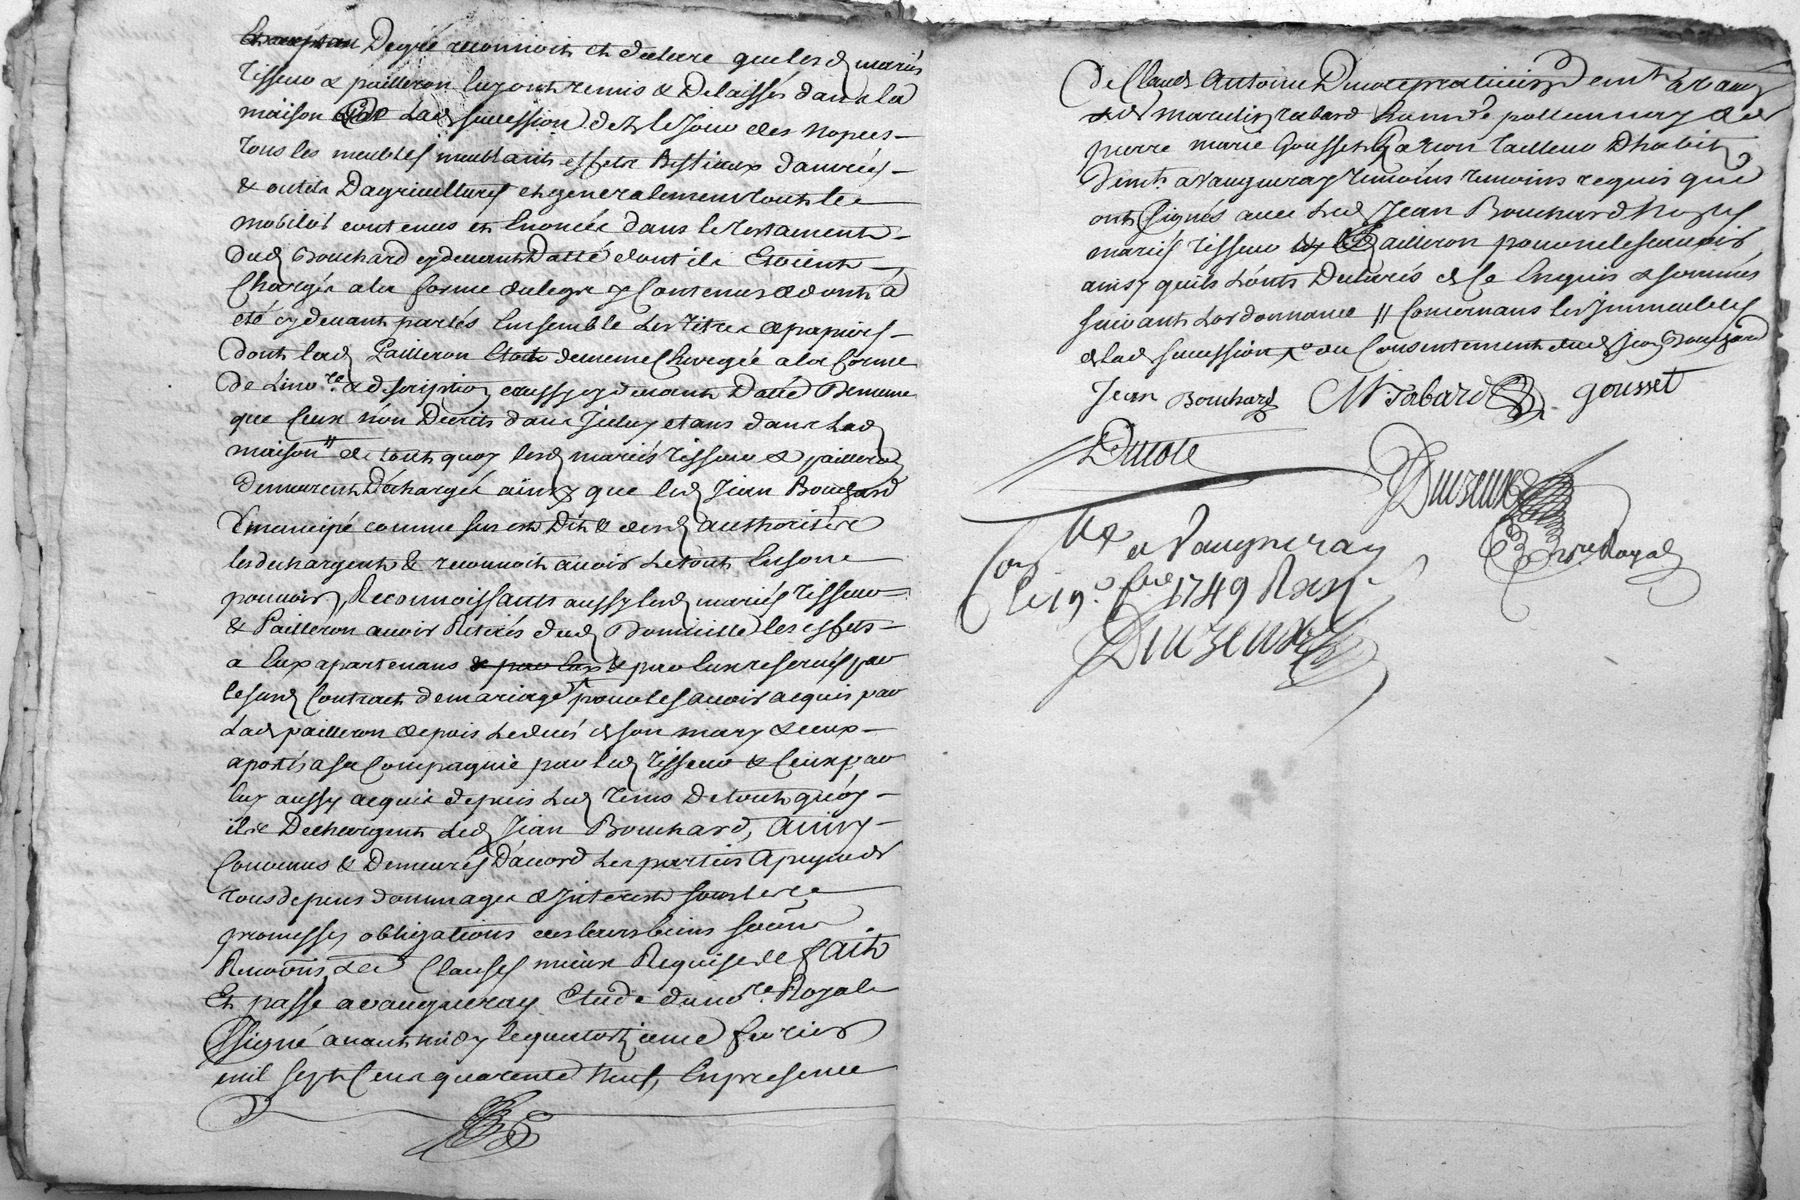 Degré reconnoit et declare que lesd mariés
Tisseur & pailleron luy ont remis & Delaissés dans la
maison de Lad succession dez le jour des nopces
Tous les meubles meublants effets Bestiaux danrées
& outils Dagricultures et generalement tout le
mobiliér contenus et Enoncés dans le Testament
dud Bouchard cydevant Datté dont ils Etoient
Chargés a la forme y Contenus & dont a
été cydevant parlés Ensemble Les titres & papiers
dont lad Pailleron Etoit demême Chargée a la forme
de Linvre & description aussy cydevant Datté Demême
que Ceux non Décrits dans Jceluy etans dans Lad
maison // de tout quoy lesd mariés Tisseur & pailleron
Demeurent Déchargés ainsy que led Jean Bouchard
Emancipé comme sus est Dit & desd authorisée
les dechargent & reconnoit avoir Le tout En son
pouvoir, Reconnoissants aussy lesd mariés Tisseur
& Pailleron avoir Retirés dud Domicille les effets
a Eux apartenans & par Eux & par Eux reservés par
le susd Contract de mariage pour les avoir acquis par
Lad pailleron depuis Le decés de son mary & ceux
aportés a sa Compagnie par led Tisseur & Ceux par
luy aussy acquis depuis Led Tems De tout quoy
ils Dechargent Led Jean Bouchard, ainsy
Convenus & Demeurés D'acord Les parties a peyne de
tous depens dommages & Jnterests sous les
promesses obligations des leurs biens soûms
Renons & Clauses mieux Requises fait
Et passé a vaugneray Etude du nore Royal
ssigné avant midy le quatorzieme fevrier
mil sept Cens quarente Neuf, En presence
De Claude Antoine Ducote praticien demt a vaugy
de marcelin tabard de pollionnay & de
pierre marie Gousset Garcon Tailleur D'habits
Demt a vaugneray temoins temoins requis que
ont signés avec Led Jean Bouchard Non les
mariés Tisseur & Pailleron pour ne le scavoir
ainsy quils L'ont Declarés de Ce Enquis & sommés
suivant Lordonnance // Concernans les Jmmeubles
de lad succession du Consentement dud Jean Bouchard
Jean Bouchard M Tabard gousset
Ducote
Duzeux
Nore Royal
Conlle a Vaugneray
le 19e fevr 1749 R
Duzeux